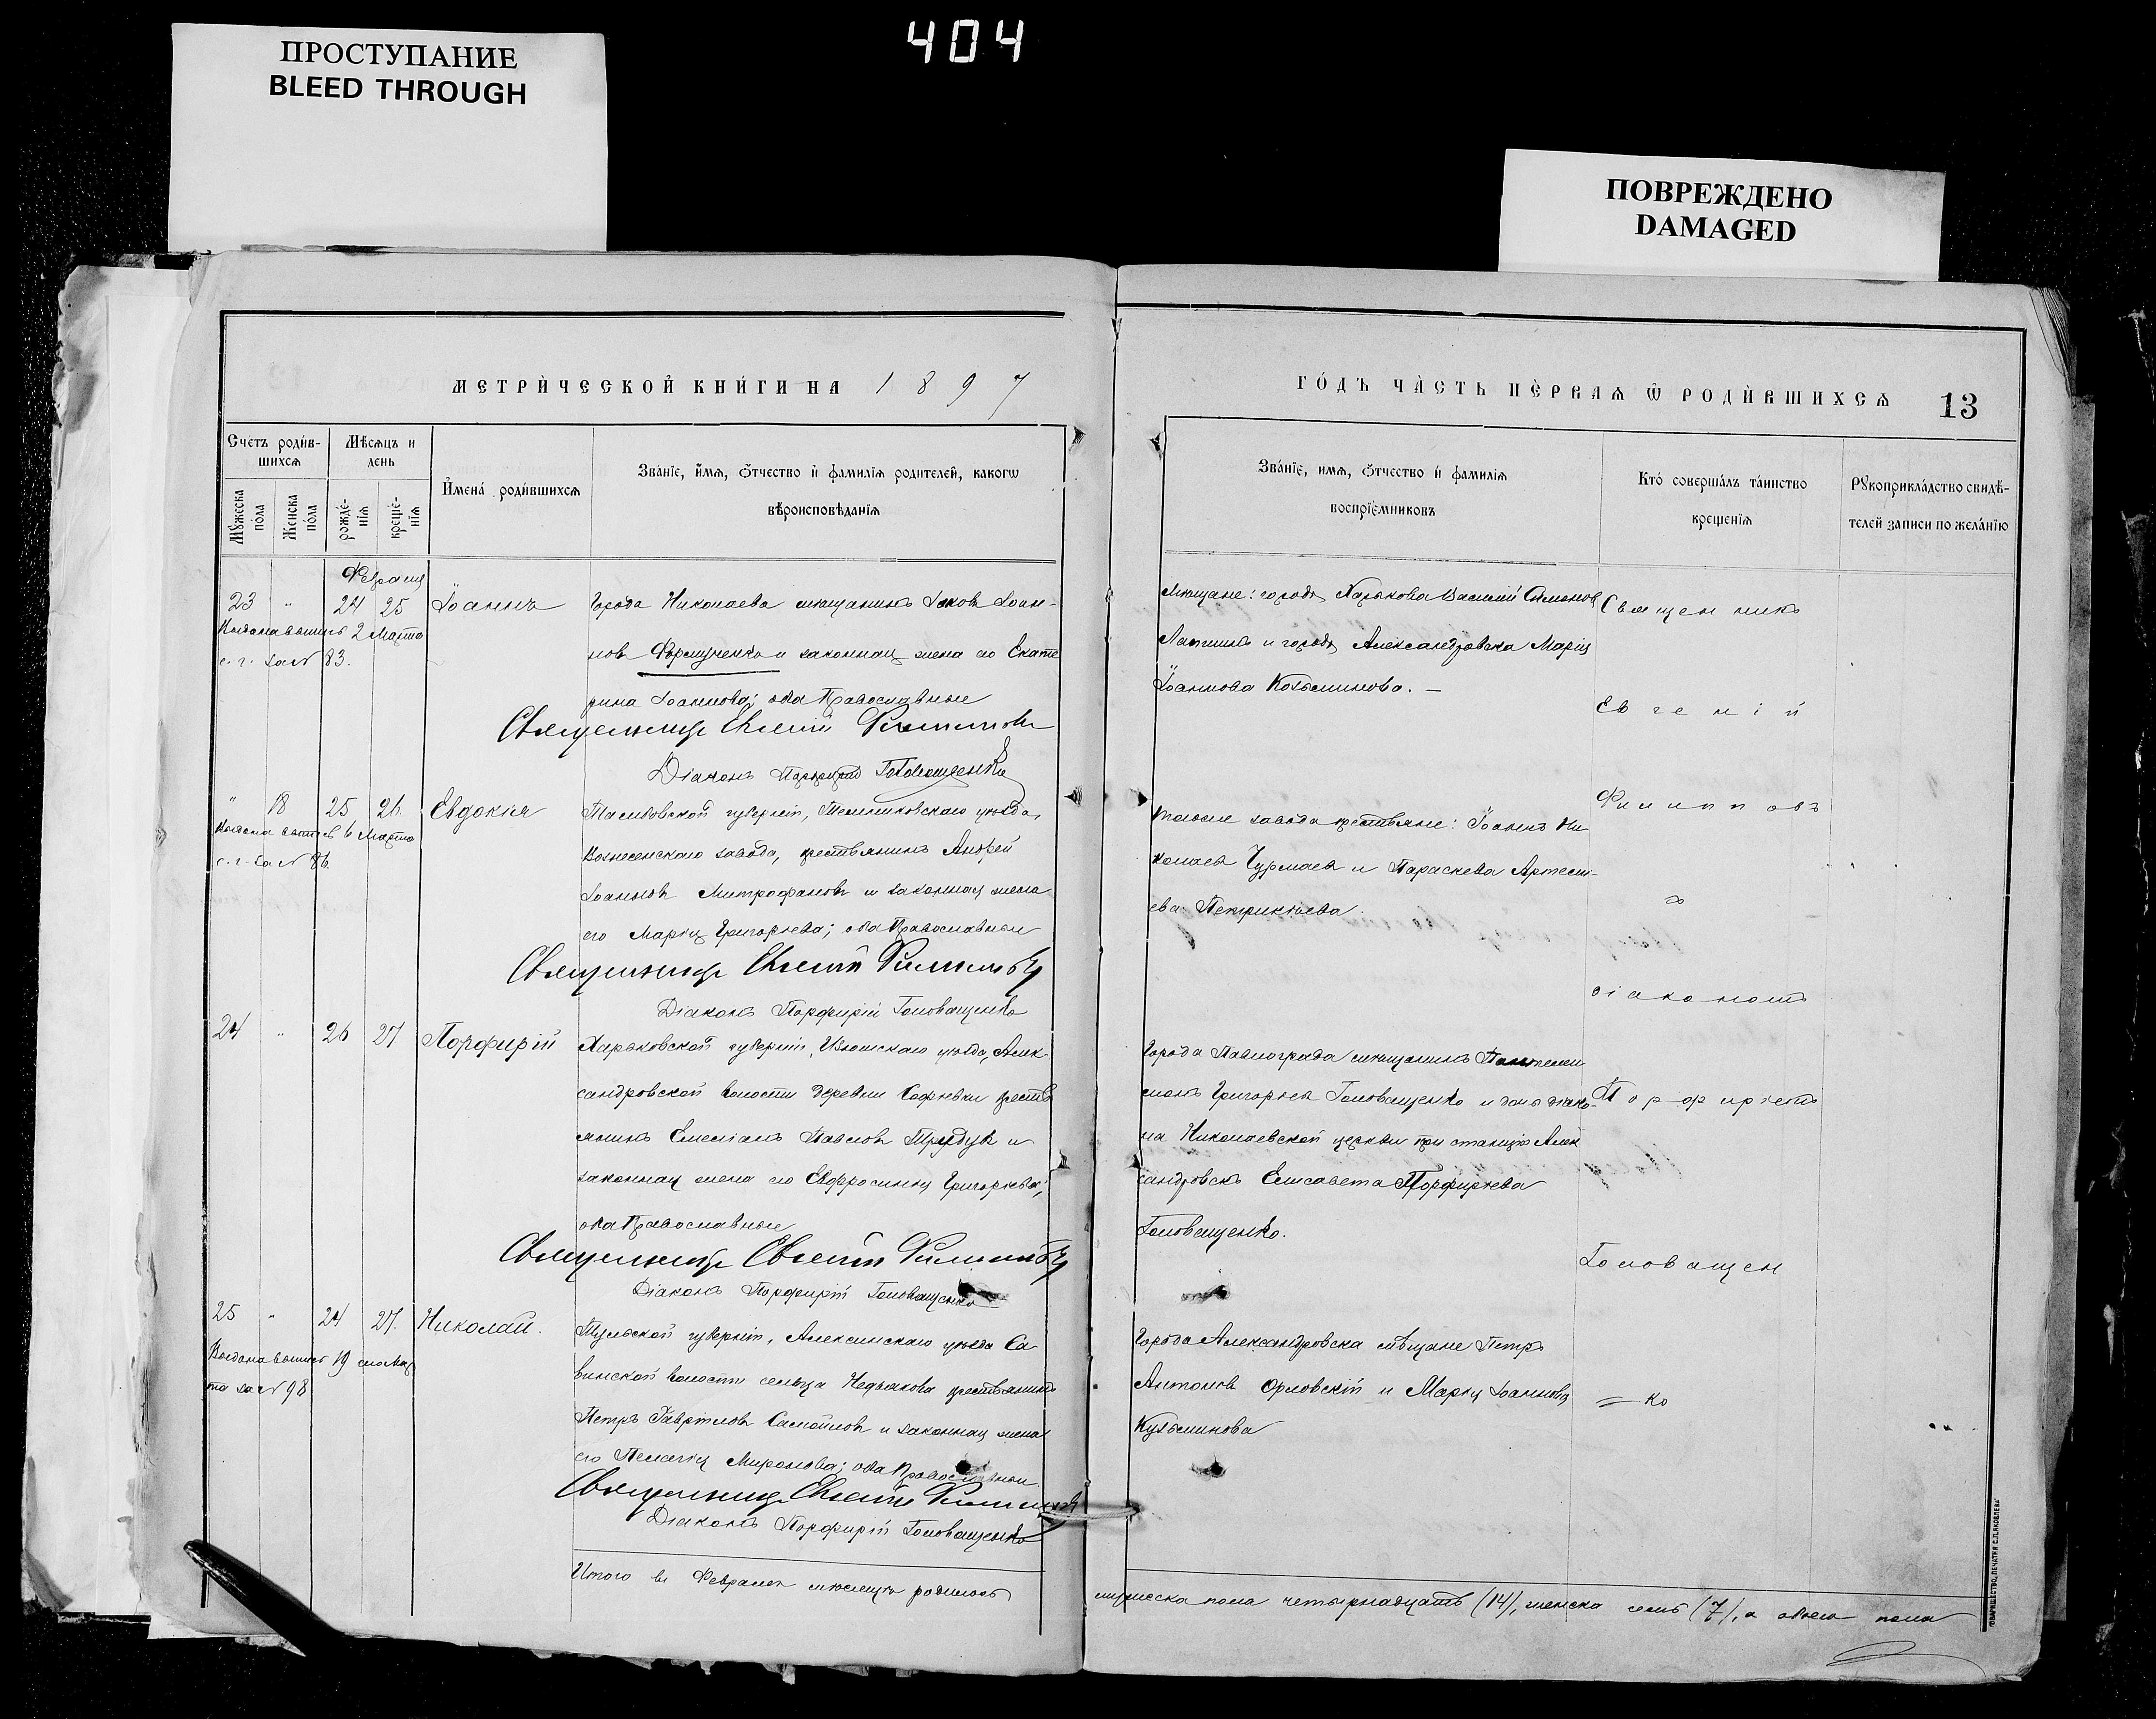 404
ПРОСТУПАНИЕ
BLEED THROUGH
ПОВРЕЖДЕНО
DAMAGED
МЕТРИЧЕСКОЙ КНИГИ НА 1897
Счетъ родив-
шихся
Мѣсяцъ и
день
Мужеска
пола
Женска
пола
рожде-
нія
креще-
нія
Имена родившихся
Званіе, имя, отчество и фамилія родителей, какогѡ
вѣроисповѣданія
Февраля
23 " 24 25 Іоаннъ
2 Марта
с. г. за № 83.
Города Николаева мѣщанинъ Іаковъ Іоан-
новъ и законная жена его Екате
рина Іоаннова; оба Православные
Священникъ Евгеній Филипповъ
Діаконъ Порфирій Головащенко
" 18 25 26 Евдокія
6 Марта
с. г. за № 86.
Тамбовской губерніи, Темниковскаго уѣзда,
Вознесенскаго завода, крестьянинъ Андрей
Іоанновъ Митрофановъ и законная жена
его Марія Григорьева; оба Православные
Священникъ Евгеній Филипповъ
Діаконъ Порфирій Головащенко
24 " 26 27 Порфирій
Харьковской губерніи, Изюмскаго уѣзда, Алек-
сандровской волости деревни Софіевки крестья
янинъ Емеліанъ Павловъ и
законная жена его Евфросинія Григорьева;
оба Православные
Священникъ Евгеній Филипповъ
Діаконъ Порфирій Головащенко
25 " 24 27. Николай.
19 сего Мар
та за № 98
Тульской губерніи, Алексинскаго уѣзда Са-
винской волости сельца крестьянинъ
Петръ Гавріиловъ Самойловъ и законная жена
его Пелагія Миронова; оба Православные
Священникъ Евгеній Филипповъ
Діаконъ Порфирій Головащенко
Итого въ Февралѣ мѣсяцѣ родилось
ГОДЪ ЧАСТЬ ПЕРВАЯ Ѿ РОДИВШИХСЯ 13
Званіе, имя, отчество и фамилія
воспріемниковъ
Кто совершалъ таинство
крещенія
Рукоприкладство свидѣ-
телей записи по желанію
Мѣщане: города Харькова Василій Симоновъ
Лапшинъ и города Александровска Марія
Іоаннова Козьминова. —
того же завода крестьяне: Іоаннъ Ни-
колаевъ Чурмаевъ и Параскева Артемі-
ева Петрикѣева.
Города Павлограда мѣщанинъ Пантелеи
монъ Григорьевъ Головащенко и дочь діако-
на Николаевской церкви при станціи Алек
сандровскъ Елисавета Порфиріева
Головащенко.
Города Александровска мѣщане Петръ
Антоновъ Орловскій и Марія Іоаннова
Кузьминова
Священникъ
Евгеній
Филипповъ
съ
діакономъ
Порфиріемъ
Головащен
= ко
мужеска пола четырнадцать (14), женска семь (7), а обоего пола